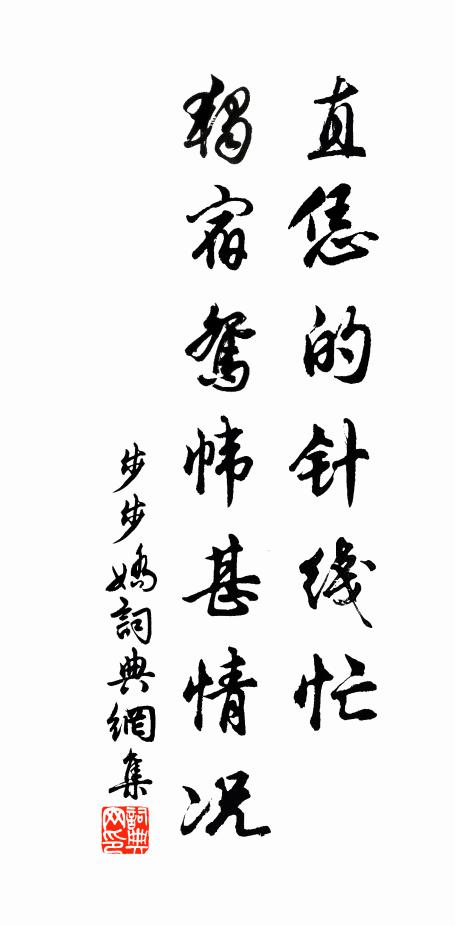 直恁的针线忙
獨宿鸳帏甚情况
步步嬌詞典網集
詞典网印